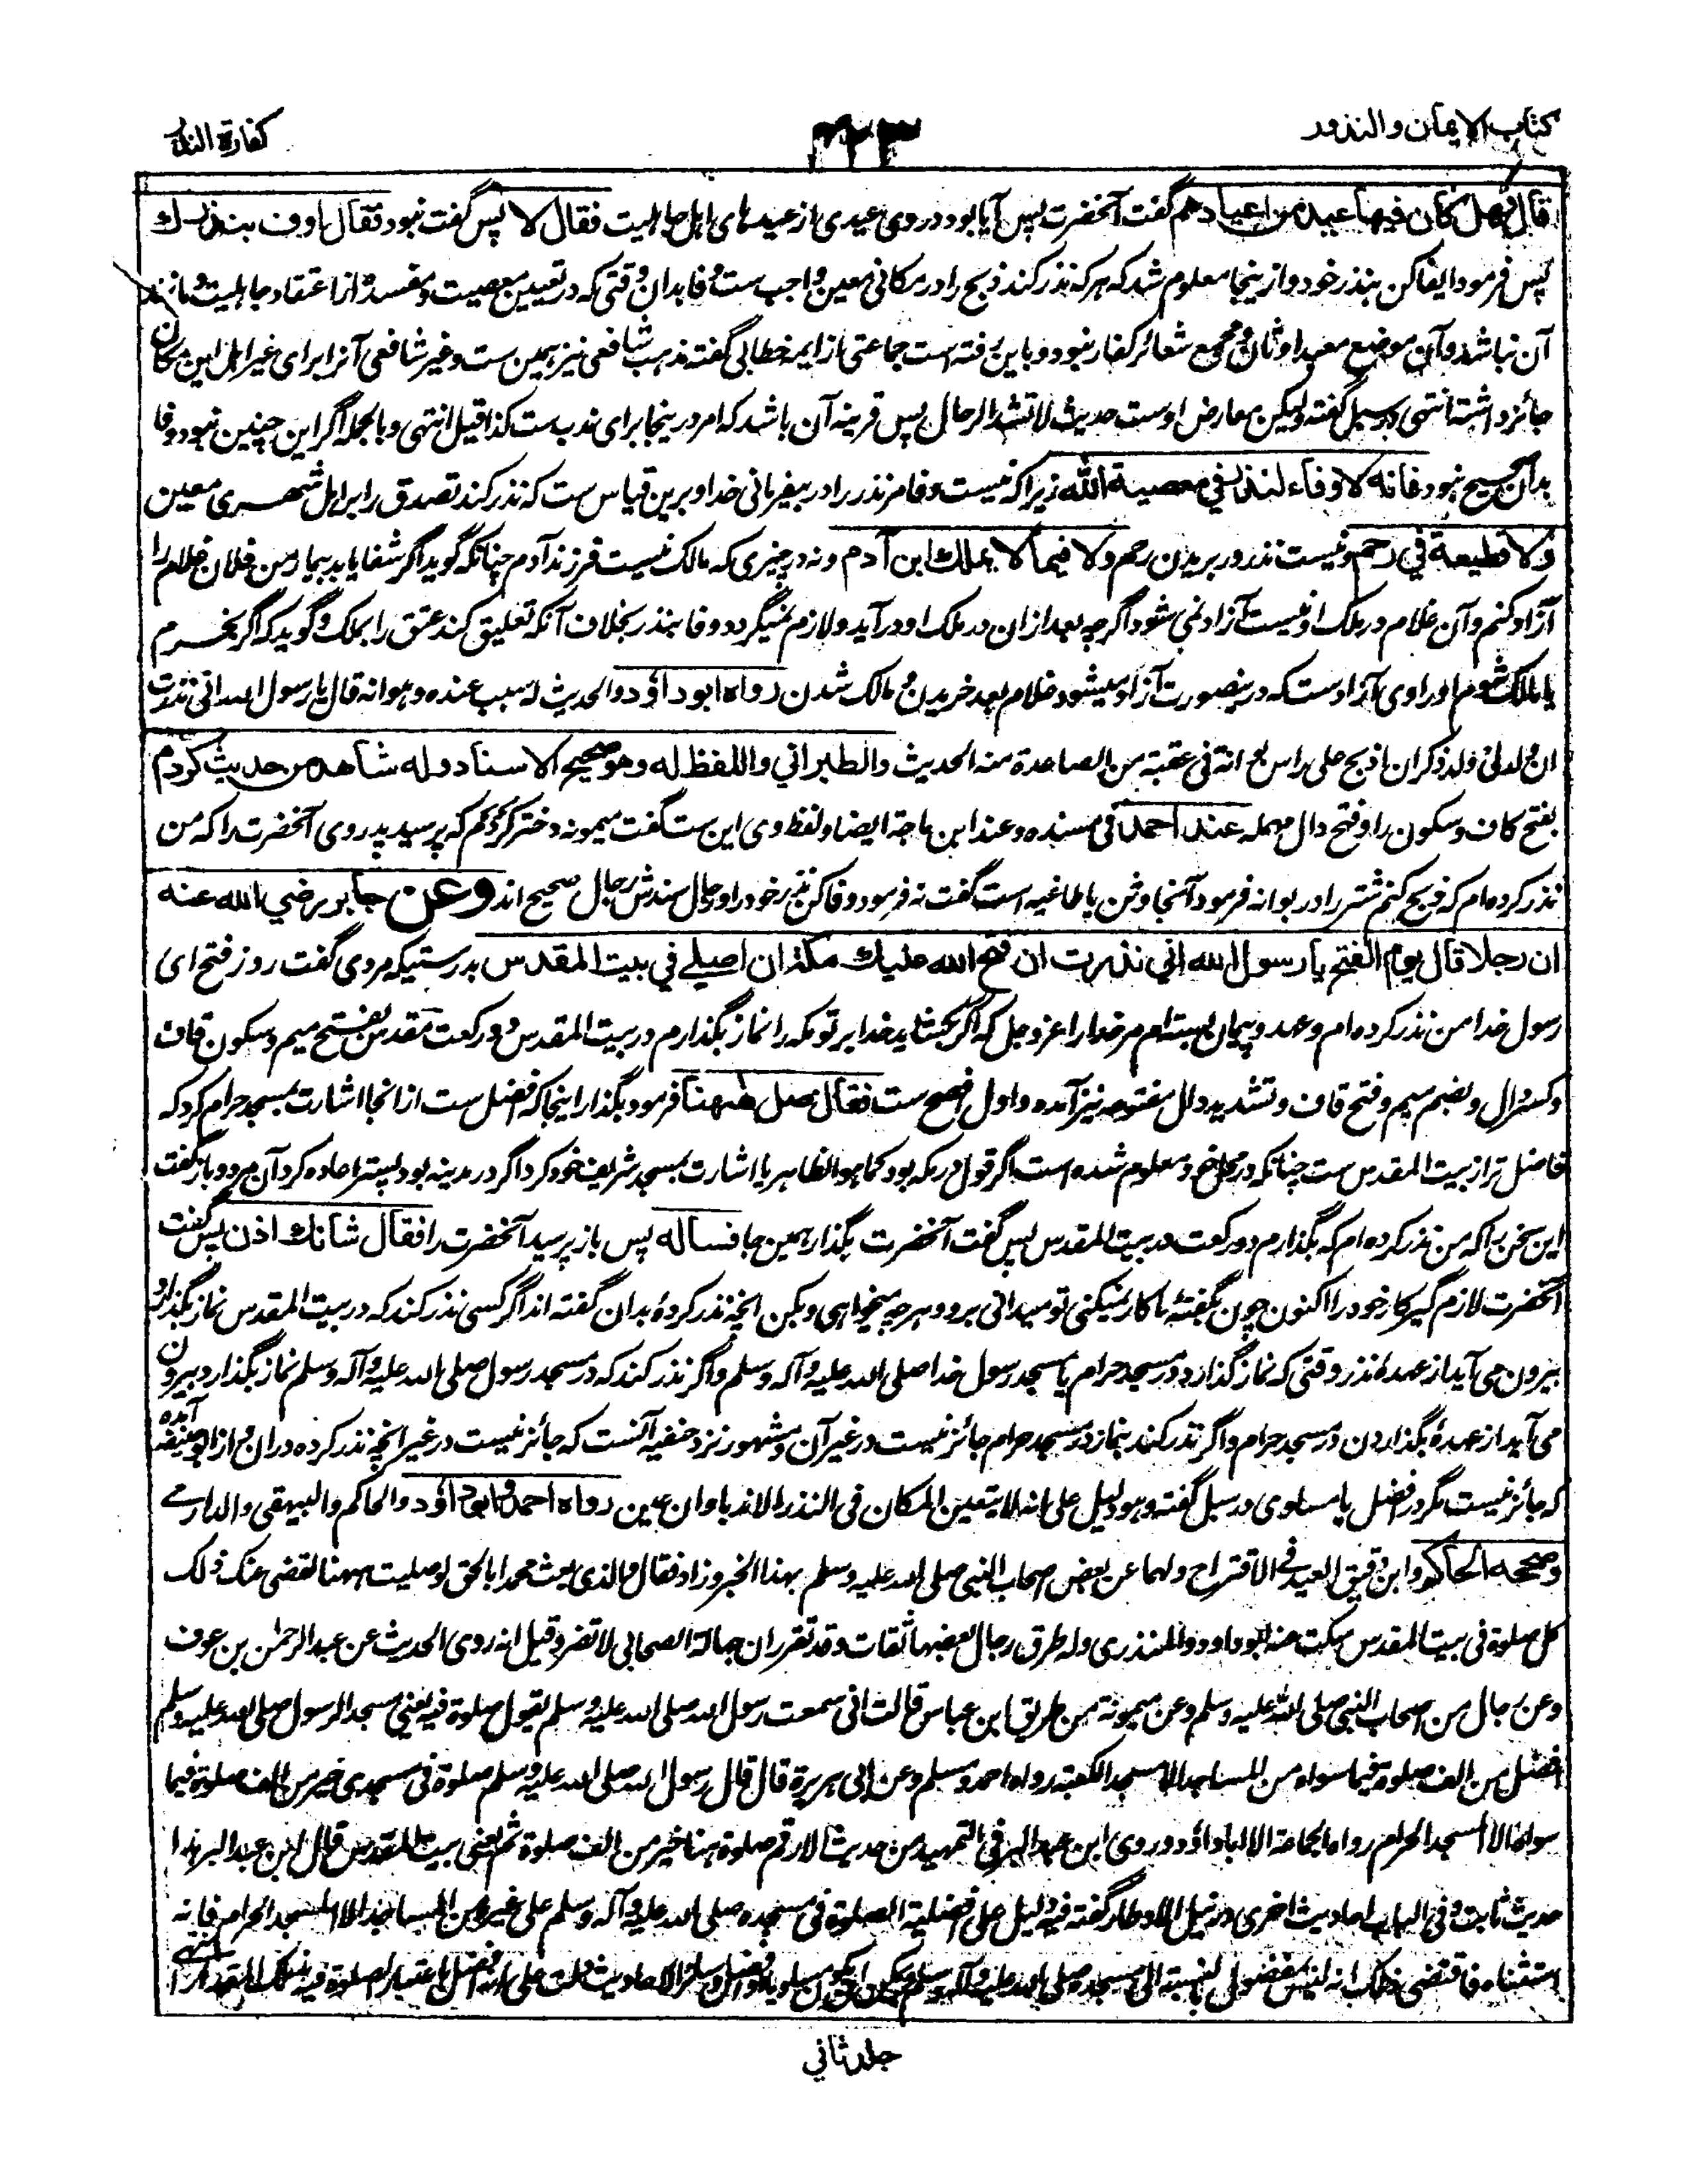 كتاب الايمان والنذور
٤٢٣
كفارة النذر
قال فهل كان فيها عيد من اعيادهم گفت آنحضرت پس آیا بود در وی عیدی از عیدهای اهل جاهلیت فقال لا پس گفت نبود فقال اوف بنذرك
پس فرمود ایفا کن بنذر خود و ازینجا معلوم شد که هر که نذر کند ذبح را در مکانی معین واجب ست وفا بدان وقتی که در تعیین معصیت و مفسده از اعتقاد جاهلیت و مانند
آن نباشد و آن موضع معبد اوثان و مجمع شعائر کفار نبود و باین رفته است جماعتی از ایمه خطابی گفته مذهب شافعی نیز همین ست و غیر شافعی آنرا برای غیر اهل این مکان
جائز داشته انتهی در سبل گفته ولیکن معارض اوست حدیث لا تشد الرحال پس قرینه آن باشد که امر درینجا برای ندب ست کذا قیل انتهی و بالجمله اگر این چنین نبود وفا
بدان صحیح نبود فانه لا وفاء لنذر في معصية الله زیرا که نیست وفا مر نذر را در بیفرمانی خدا و برین قیاس ست که نذر کند تصدق را بر اهل شهری معین
ولا قطيعة في رحم و نیست نذر در بریدن رحم ولا فيما لا يملك ابن آدم و نه در چیزی که مالک نیست فرزند آدم چنانکه گوید اگر شفا یابد بیمار من فلان غلام را
آزاد کنم و آن غلام در ملک او نیست آزاد نمی شود اگر چه بعد ازان در ملک او در آید و لازم نمیگردد وفا بنذر بخلاف آنکه تعلیق کند عتق را بملک و گوید که اگر بخرم
یا مالک شوم او را وی آزادست که درینصورت آزاد میشود غلام بعد خریدن و مالک شدن رواه ابو داؤد والحدیث له سبب عنده و هو انه قال یا رسول الله انی نذرت
ان ولد لی ولد ذکر ان اذبح علی راس بوانه فی عقبة من الصاعدة منه الحدیث والطبراني واللفظ له وهو صحيح الاسناد وله شاهد من حديث كردم
بفتح کاف و سکون را و فتح دال مهمله عند احمد فی مسنده و عند ابن ماجة ایضا و لفظ وی این ست گفت میمونه دختر کردم که پرسید پدر وی آنحضرت را که من
نذر کرده ام که ذبح کنم شتر را در بوانه فرمود آنجا وثن یا طاغیه است گفت نه فرمود وفا کن نذر خود را و رجال سندش رجال صحیح اند وعن جابر رضي الله عنه
ان رجلا قال يوم الفتح يا رسول الله اني نذرت ان فتح الله عليك مكة ان اصلي في بيت المقدس بدرستیکه مردی گفت روز فتح ای
رسول خدا من نذر کرده ام و عهد و پیمان بسته ام مر خدا را عز و جل که اگر بکشاید خدا بر تو مکه را نماز بگذارم در بیت المقدس دو رکعت مقدس بفتح میم و سکون قاف
و کسر دال و بضم میم و فتح قاف و تشدید دال مفتوحه نیز آمده و اول افصح ست فقال صل ههنا فرمود بگذار اینجا که افضل ست از انجا اشارت بمسجد حرام کرد که
فاضل تر از بیت المقدس ست چنانکه در محل خود معلوم شده است اگر قول در مکه بود کما هو الظاهر یا اشارت بمسجد شریف خود کرد اگر در مدینه بود پستر اعاده کرد آن مرد و باز گفت
این سخن را که من نذر کرده ام که بگذارم دو رکعت در بیت المقدس پس گفت آنحضرت بگذار همین جا فساله پس باز پرسید آنحضرت را فقال شانك اذن پس گفت
آنحضرت لازم گیر کار خود را اکنون چون بگفتهٔ ما کار نمیکنی تو میدانی برو و هر چه میخواهی و بکن انچه نذر کردهٔ بدان گفته اند اگر کسی نذر کند که در بیت المقدس نماز بگذارد
بیرون می آید از عهدهٔ نذر وقتی که نماز گذارد در مسجد حرام یا مسجد رسول خدا صلی الله علیه وآله وسلم و اگر نذر کند که در مسجد رسول صلی الله علیه وآله وسلم نماز بگذارد بیرون
می آید از عهدهٔ بگذاردن در مسجد حرام و اگر نذر کند بنماز در مسجد حرام جائز نیست در غیر آن و مشهور نزد حنفیه آنست که جائز نیست در غیر انچه نذر کرده دران و از ابو حنیفه آمده
که جائز نیست مگر در افضل یا مساوی در سبل گفته و هو دلیل علی انه لا یتعین المکان فی النذر الا ندبا وان عین رواه احمد وابو داؤد والحاکم والبیهقی والدارمی
وصححه الحاكم وابن دقیق العید فی الاقتراح ولهما عن بعض صحاب النبی صلی الله علیه وسلم بهذا الخبر وزاد فقال والذی بعث محمدا بالحق لو صلیت ههنا لقضی عنک ذلک
کل صلوة فی بیت المقدس سکت عنه ابو داود والمنذری وله طرق رجال بعضها ثقات وقد تقرر ان جهالة الصحابی لا تضر وقیل انه روی الحدیث عن عبد الرحمن بن عوف
وعن رجال من اصحاب النبی صلی الله علیه وسلم وعن میمونة من طریق ابن عباس قالت انی سمعت رسول الله صلی الله علیه وسلم یقول صلوة فیه یعنی مسجد الرسول صلی الله علیه وسلم
افضل من الف صلوة فیما سواه من المساجد الا مسجد الکعبة رواه احمد ومسلم وعن ابی هریرة قال قال رسول الله صلی الله علیه وسلم صلوة فی مسجدی خیر من الف صلوة فیما
سواه الا المسجد الحرام رواه الجماعة الا ابا داؤد وروی ابن عبد البر فی التمهید من حدیث الارقم صلوة هنا خیر من الف صلوة ثم یعنی بیت المقدس قال ابن عبد البر هذا
حدیث ثابت وفی الباب احادیث اخری و در نیل الاوطار گفته فیه دلیل علی افضلیة الصلوة فی مسجده صلی الله علیه وآله وسلم علی غیره من المساجد الا المسجد الحرام فانه
استثناه فاقتضی ذلک انه لیس بمفضول بالنسبة الی مسجده صلی الله علیه وآله وسلم
جلد ثاني